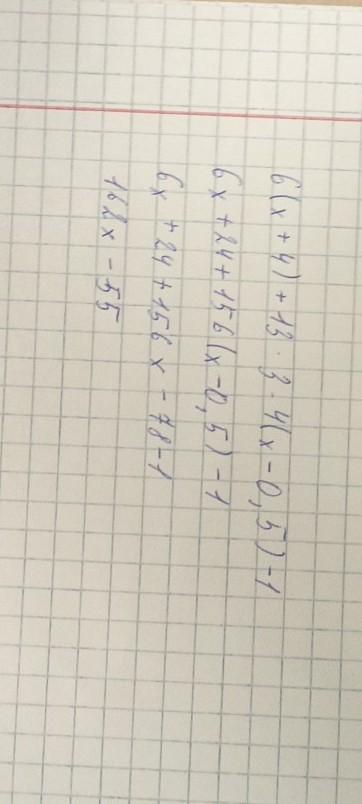 6(x+4)+13·3·4(x-0,5)-1
6x+24+156(x-0,5)-1
6x+24+156x-78-1
162x-55